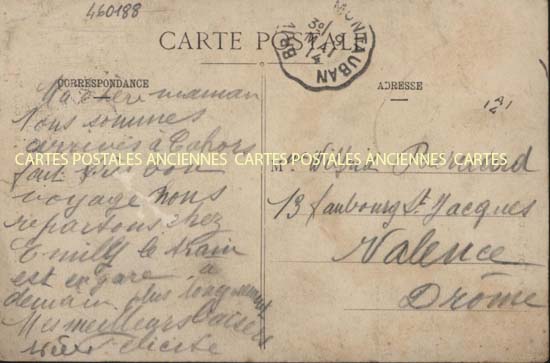 460188
CARTE POSTALE
MONTAUBAN
CORRESPONDANCE
ADRESSE
Ma chère maman
Nous sommes
arrivés à Cahors
fait très bon
voyage nous
repartons chez
Emilly le train
est en gare à
demain plus longuement
Mes meilleurs baisers
Félicité
CARTES POSTALES ANCIENNES CARTES POSTALES ANCIENNES CARTES POSTALES ANCIENNES
13 faubourg St Jacques
Valence
Drôme